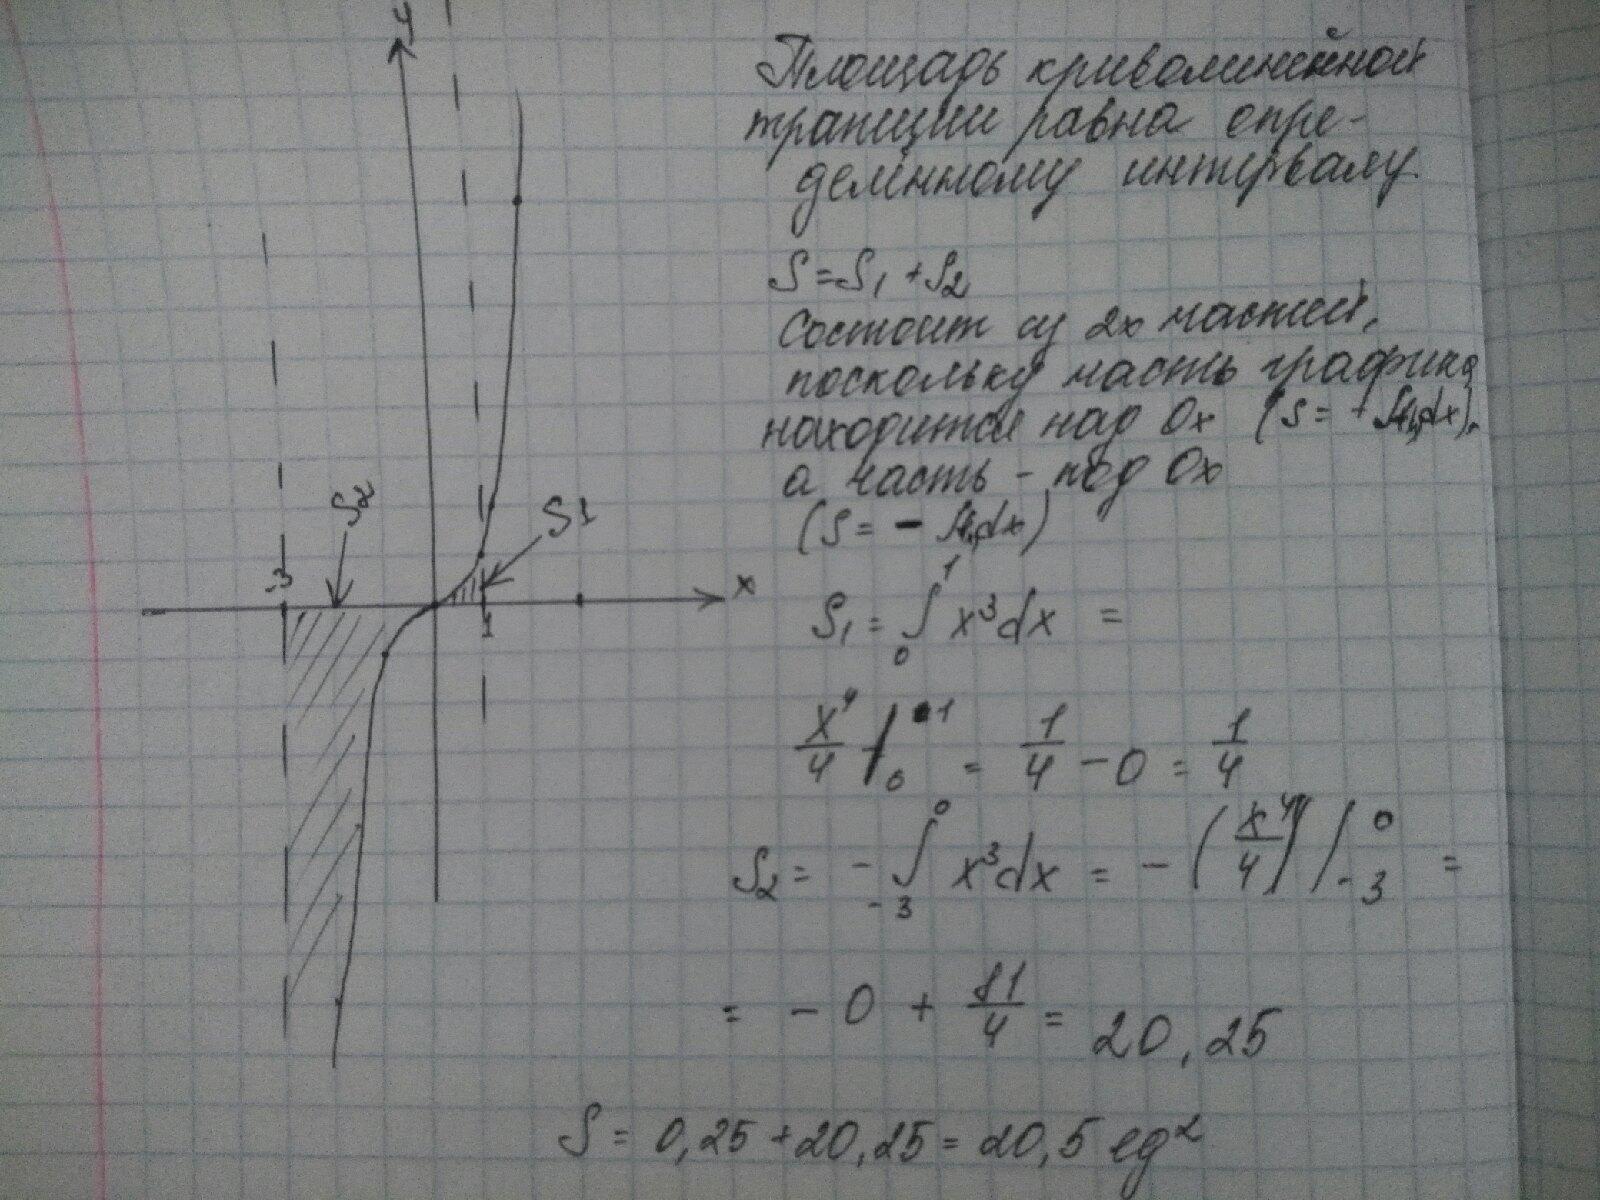 y
Площадь криволинейной
трапеции равна опре-
делённому интервалу.
S = S₁ + S₂
Состоит из 2х частей,
поскольку часть графика
находится над Ox (S = +∫f(x)dx),
а часть - под Ox
(S = - ∫f(x)dx)
S2
S1
-3
x
1
S₁ = ∫₀¹ x³dx =
x⁴/4 |₀¹ = 1/4 - 0 = 1/4
S₂ = - ∫₋₃⁰ x³dx = - (x⁴/4) |₋₃⁰ =
= - 0 + 81/4 = 20,25
S = 0,25 + 20,25 = 20,5 ед²